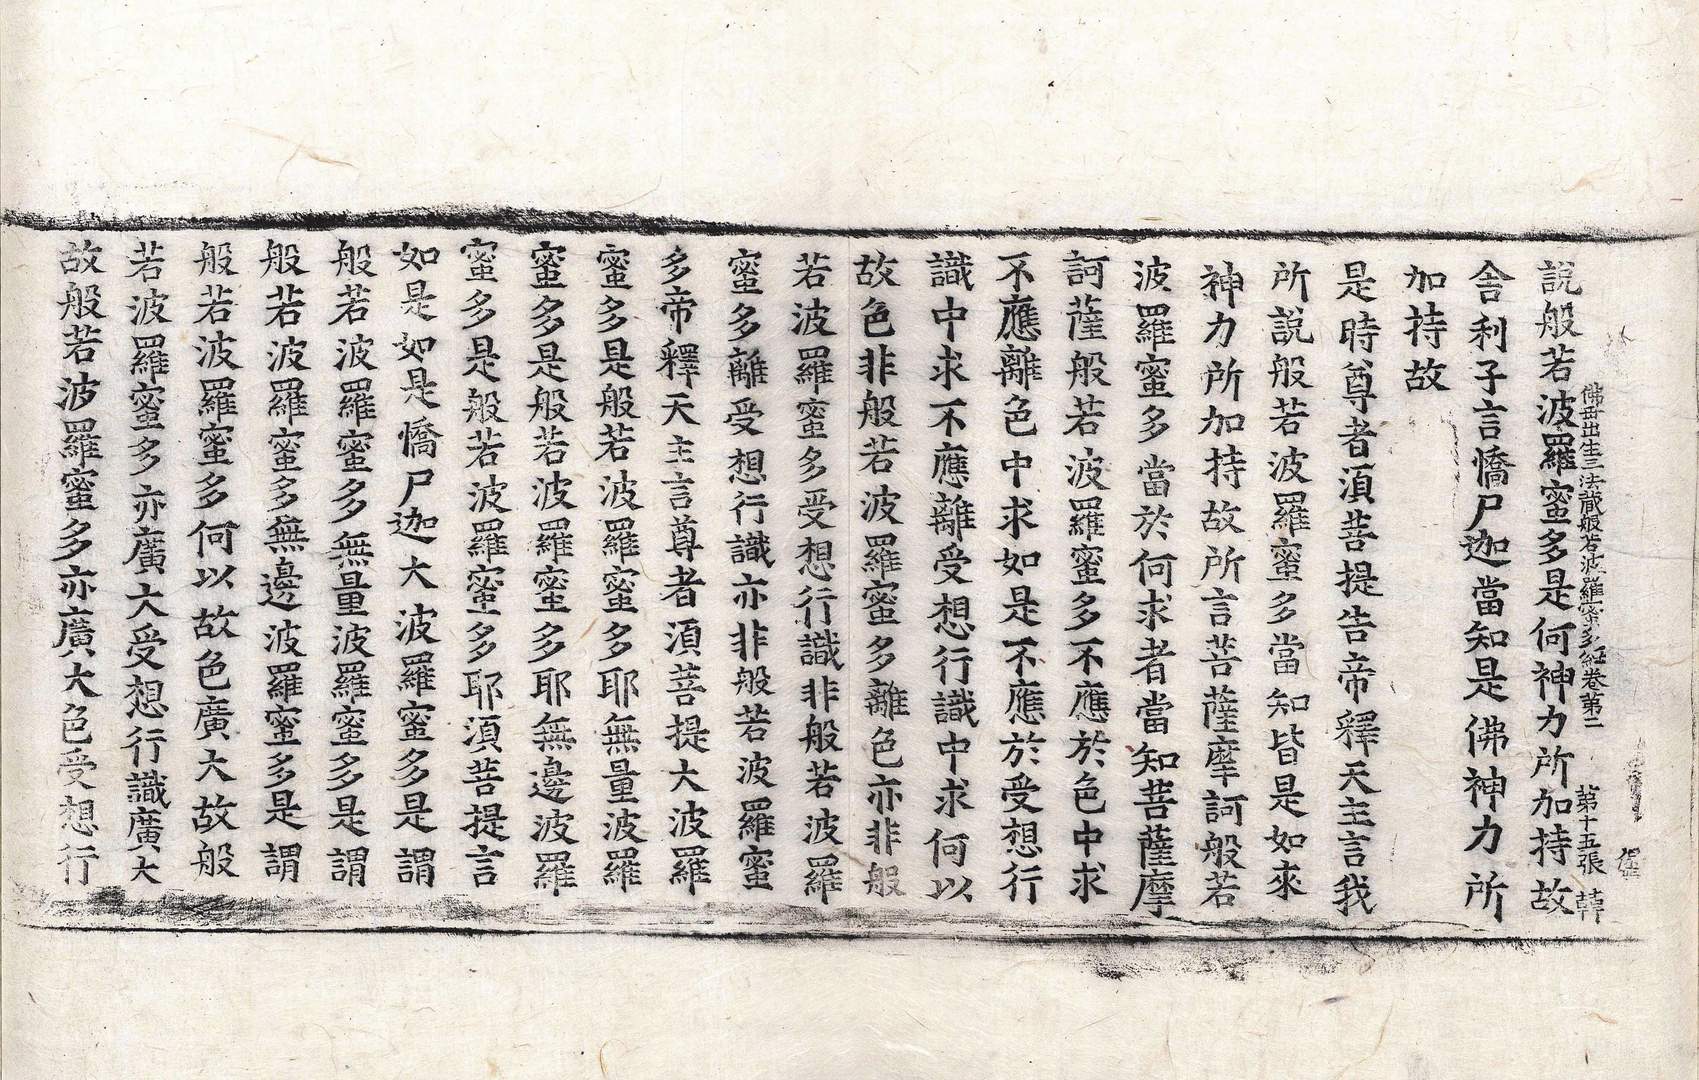 佛母出生三法藏般若波羅蜜多經卷第二 第十五張 韓
說般若波羅蜜多是何神力所加持故
舍利子言憍尸迦當知是佛神力所
加持故
是時尊者湏菩提告帝釋天主言我
所說般若波羅蜜多當知皆是如來
神力所加持故所言菩薩摩訶般若
波羅蜜多當於何求者當知菩薩摩
訶薩般若波羅蜜多不應於色中求
不應離色中求如是不應於受想行
識中求不應離受想行識中求何以
故色非般若波羅蜜多離色亦非般
若波羅蜜多受想行識非般若波羅
蜜多離受想行識亦非般若波羅蜜
多帝釋天主言尊者湏菩提大波羅
蜜多是般若波羅蜜多耶無量波羅
蜜多是般若波羅蜜多耶無邊波羅
蜜多是般若波羅蜜多耶湏菩提言
如是如是憍尸迦大波羅蜜多是謂
般若波羅蜜多無量波羅蜜多是謂
般若波羅蜜多無邊波羅蜜多是謂
般若波羅蜜多何以故色廣大故般
若波羅蜜多亦廣大受想行識廣大
故般若波羅蜜多亦廣大色受想行